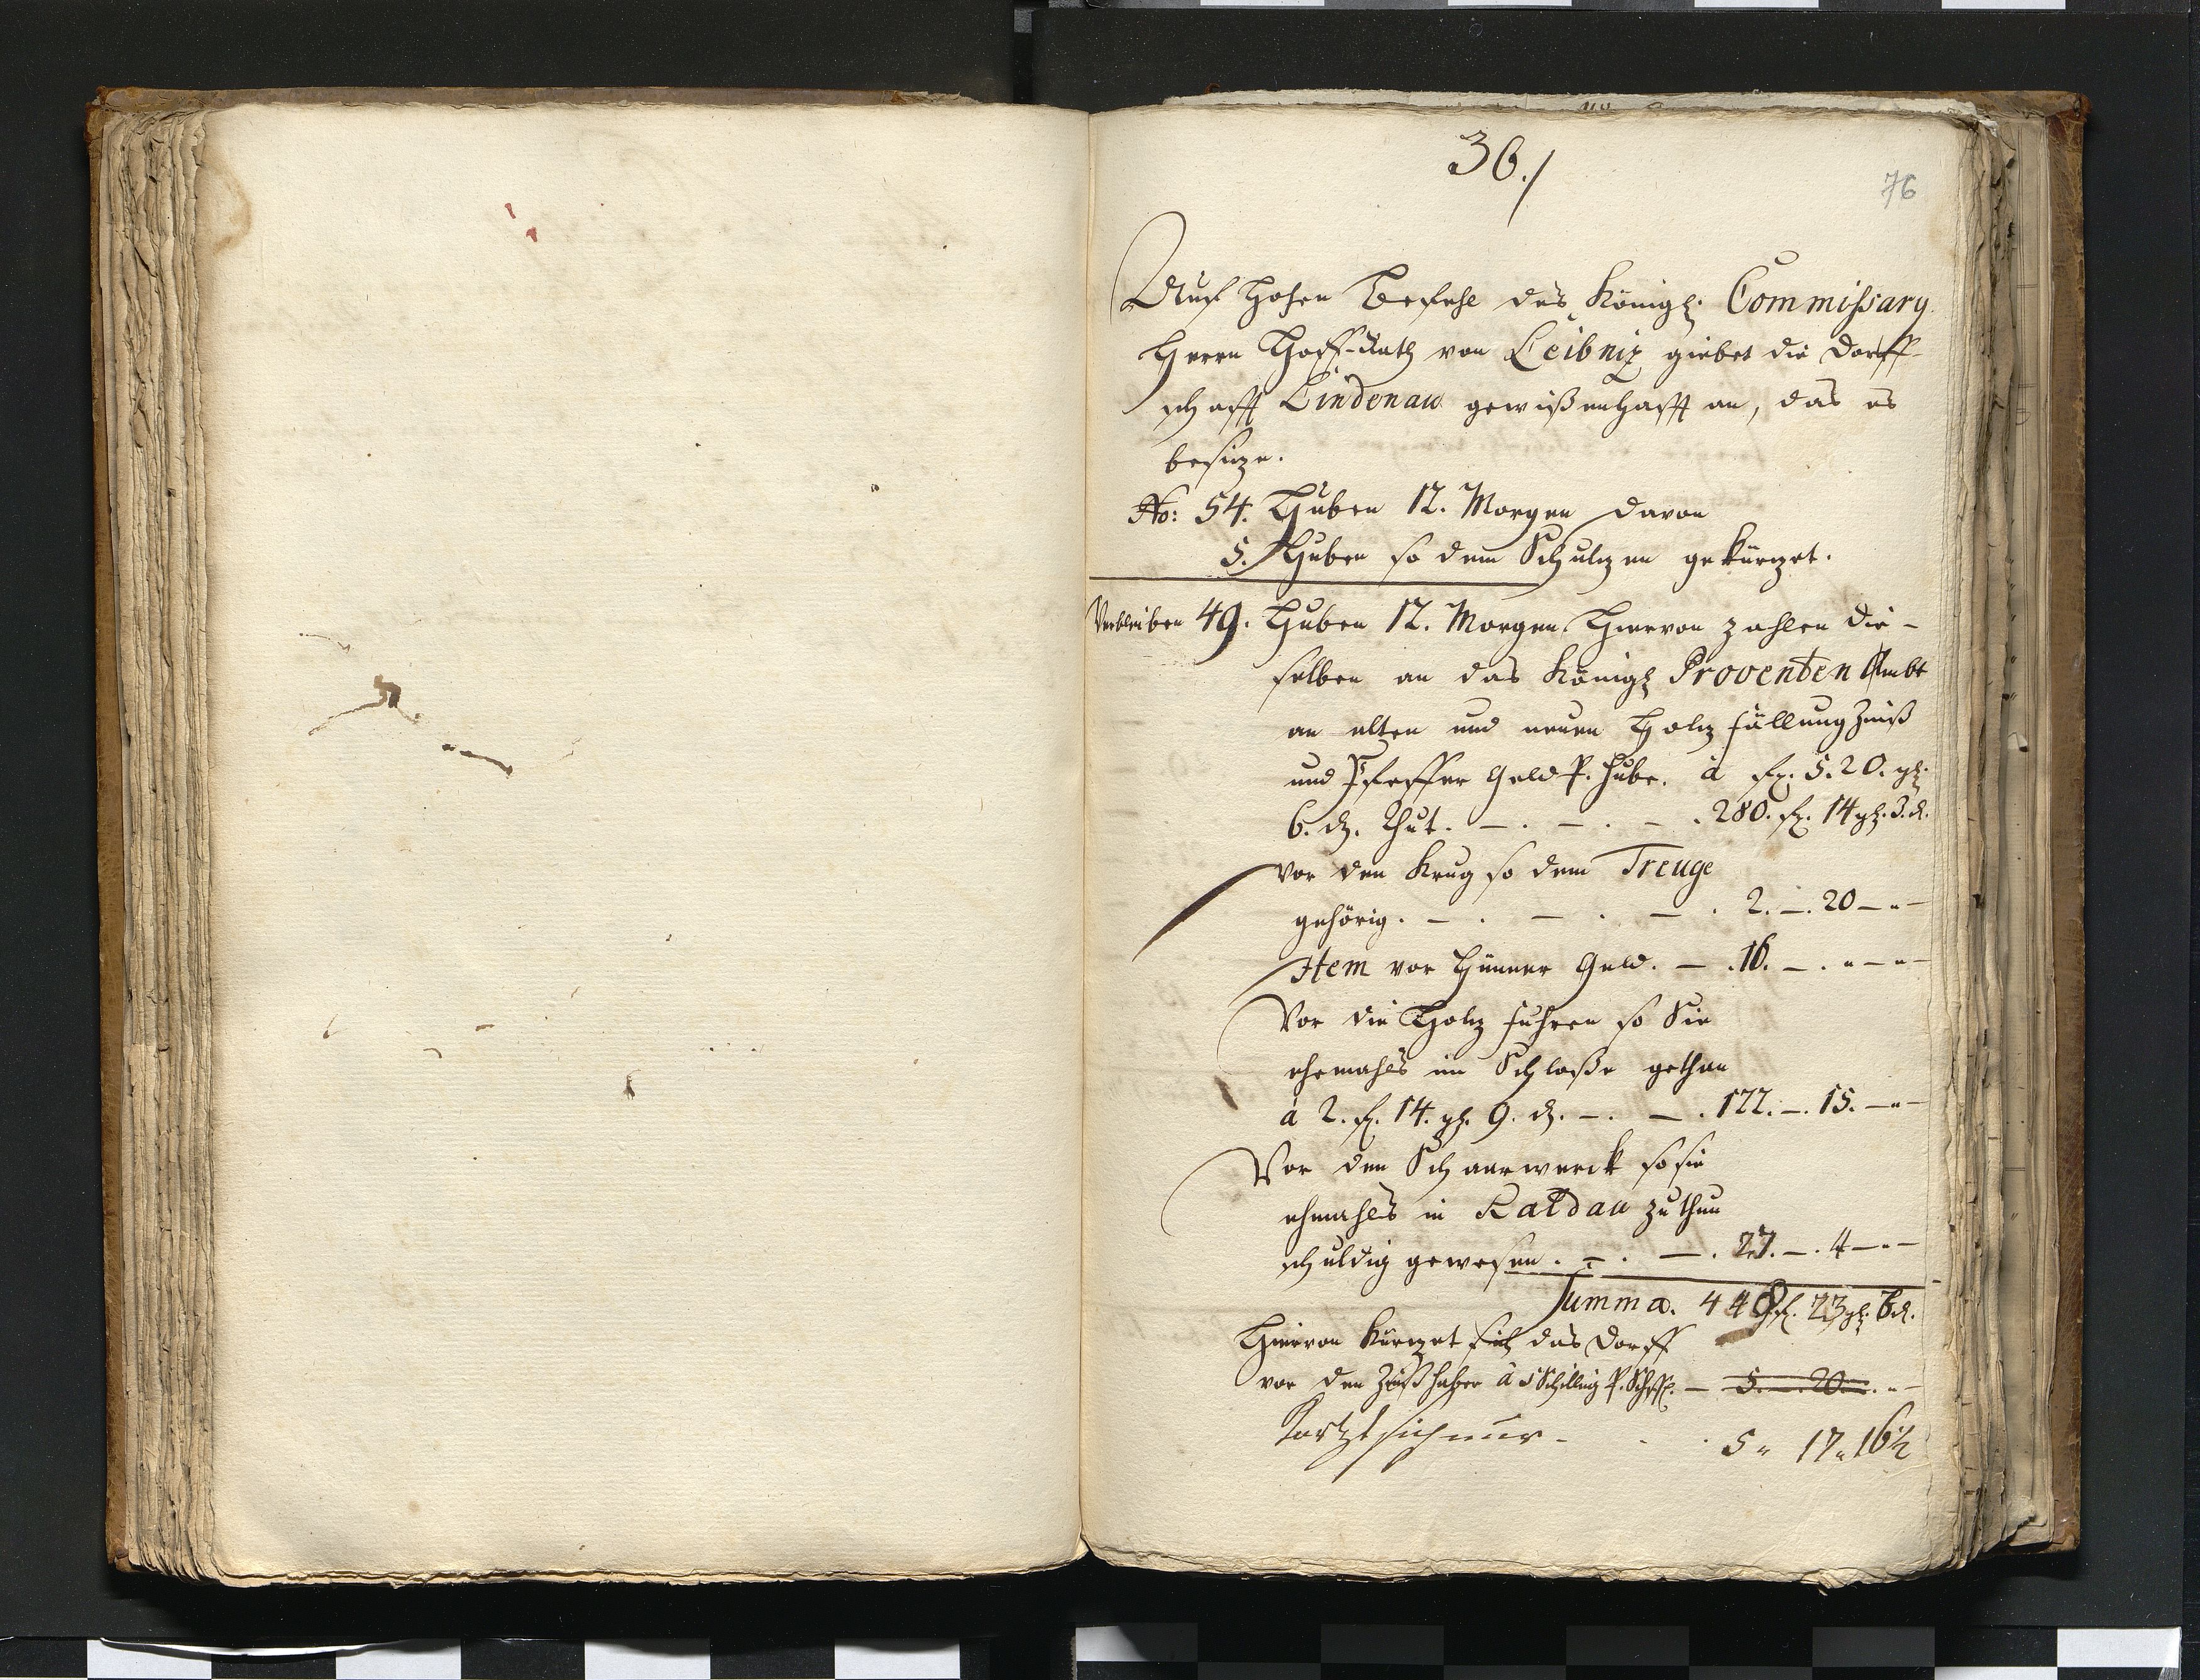 36./
76
Auf Hohen Befehl des Königl. Commißary
Herrn Hoff-Rath von Leibniz giebet die Dorff-
schafft Lindenau gewißenhafft an, das es
besitze.
No: 54. Huben 12. Morgen davon
5. Huben so dem Schultzen gekürtzet.
Verbleiben 49. Huben 12. Morgen Hiervon zahlen die-
selben an das Königl Proventen Ambt
an alten und neuen Holtz fällung Zinß
und Pfeffer Geld P. Hube. à fl. 5. 20. gl.
6. d. thut. — . — . — . 280. fl. 14 gl. 3. d.
vor den Krug so dem Treuge
gehörig. — . — . — . 2. —. 20 — " —
Item vor Hünner Geld. — . 16. — . " — " —
Vor die Holtz fuhren so Sie
ehemahls im Schloße gethan
à 2. fl. 14. gl. 9. d. — . — . 122. —. 15. — " —
Vor den Schaarwerck so sie
ehmahls in Kaldau zu thun
schuldig gewesen . — . — . 27. —. 4 — " —
Summa. 449 fl. 23 gl. 6 d.
Hiervon kürtzet sich das Dorff
vor den Zinß haber à 5 Schilling P. Scheffl. — 5. — 20 — . " —
Kürtzt sich nur - - . 5 " 17 " 16½